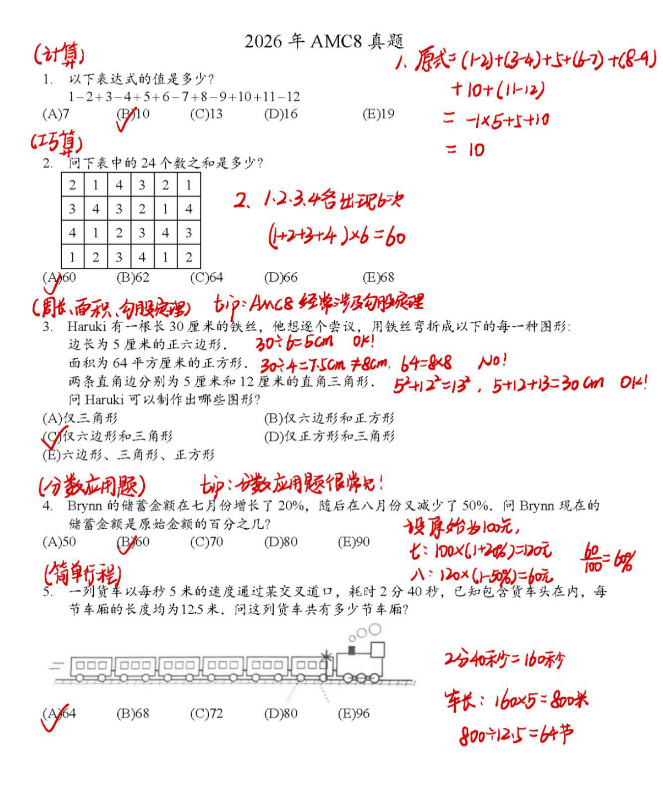 2026 年 AMC8 真题
(计算)
1. 以下表达式的值是多少?
1−2+3−4+5+6−7+8−9+10+11−12
(A)7 (B)10 (C)13 (D)16 (E)19
1、原式=(1-2)+(3-4)+5+(6-7)+(8-9)
+10+(11-12)
= -1×5+5+10
= 10
(巧算)
2. 问下表中的 24 个数之和是多少?
2 1 4 3 2 1
3 4 3 2 1 4
4 1 2 3 4 3
1 2 3 4 1 2
2、1、2、3、4各出现6次
(1+2+3+4)×6=60
(A)60 (B)62 (C)64 (D)66 (E)68
(周长、面积、勾股定理) tip:AMC8 经常涉及勾股定理
3. Haruki 有一根长 30 厘米的铁丝，他想逐个尝试，用铁丝弯折成以下的每一种图形:
边长为 5 厘米的正六边形. 30÷6=5cm OK!
面积为 64 平方厘米的正方形. 30÷4=7.5cm ≠8cm. 64=8×8 No!
两条直角边分别为 5 厘米和 12 厘米的直角三角形. 5²+12²=13², 5+12+13=30cm OK!
问 Haruki 可以制作出哪些图形?
(A)仅三角形 (B)仅六边形和正方形
(C)仅六边形和三角形 (D)仅正方形和三角形
(E)六边形、三角形、正方形
(分数应用题) tip:分数应用题很常见!
4. Brynn 的储蓄金额在七月份增长了 20%，随后在八月份又减少了 50%. 问 Brynn 现在的
储蓄金额是原始金额的百分之几?
(A)50 (B)60 (C)70 (D)80 (E)90
设原始为100元,
七: 100×(1+20%)=120元
八: 120×(1-50%)=60元
60/100=60%
(简单行程)
5. 一列货车以每秒 5 米的速度通过某交叉道口，耗时 2 分 40 秒，已知包含货车头在内，每
节车厢的长度均为12.5米. 问这列货车共有多少节车厢?
2分40秒=160秒
车长: 160×5=800米
800÷12.5=64节
(A)64 (B)68 (C)72 (D)80 (E)96